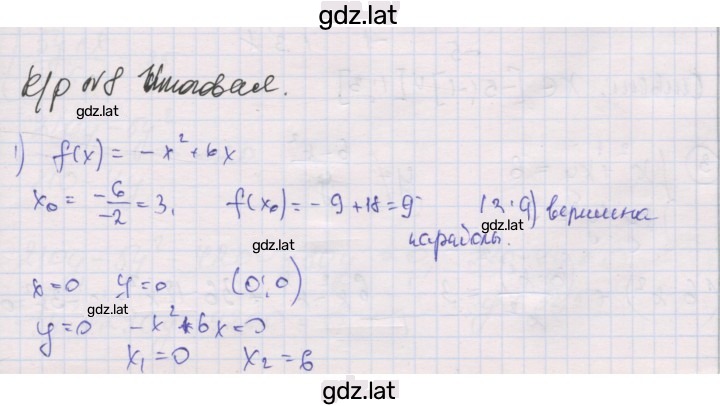 gdz.lat
К/р №8 Итоговая.
gdz.lat
1) f(x) = -x² + 6x
x₀ = -6/-2 = 3, f(x₀) = -9 + 18 = 9 (3; 9) вершина
параболы.
gdz.lat
x=0 y=0 (0; 0)
gdz.lat
y=0 -x² + 6x = 0
x₁ = 0 x₂ = 6
gdz.lat